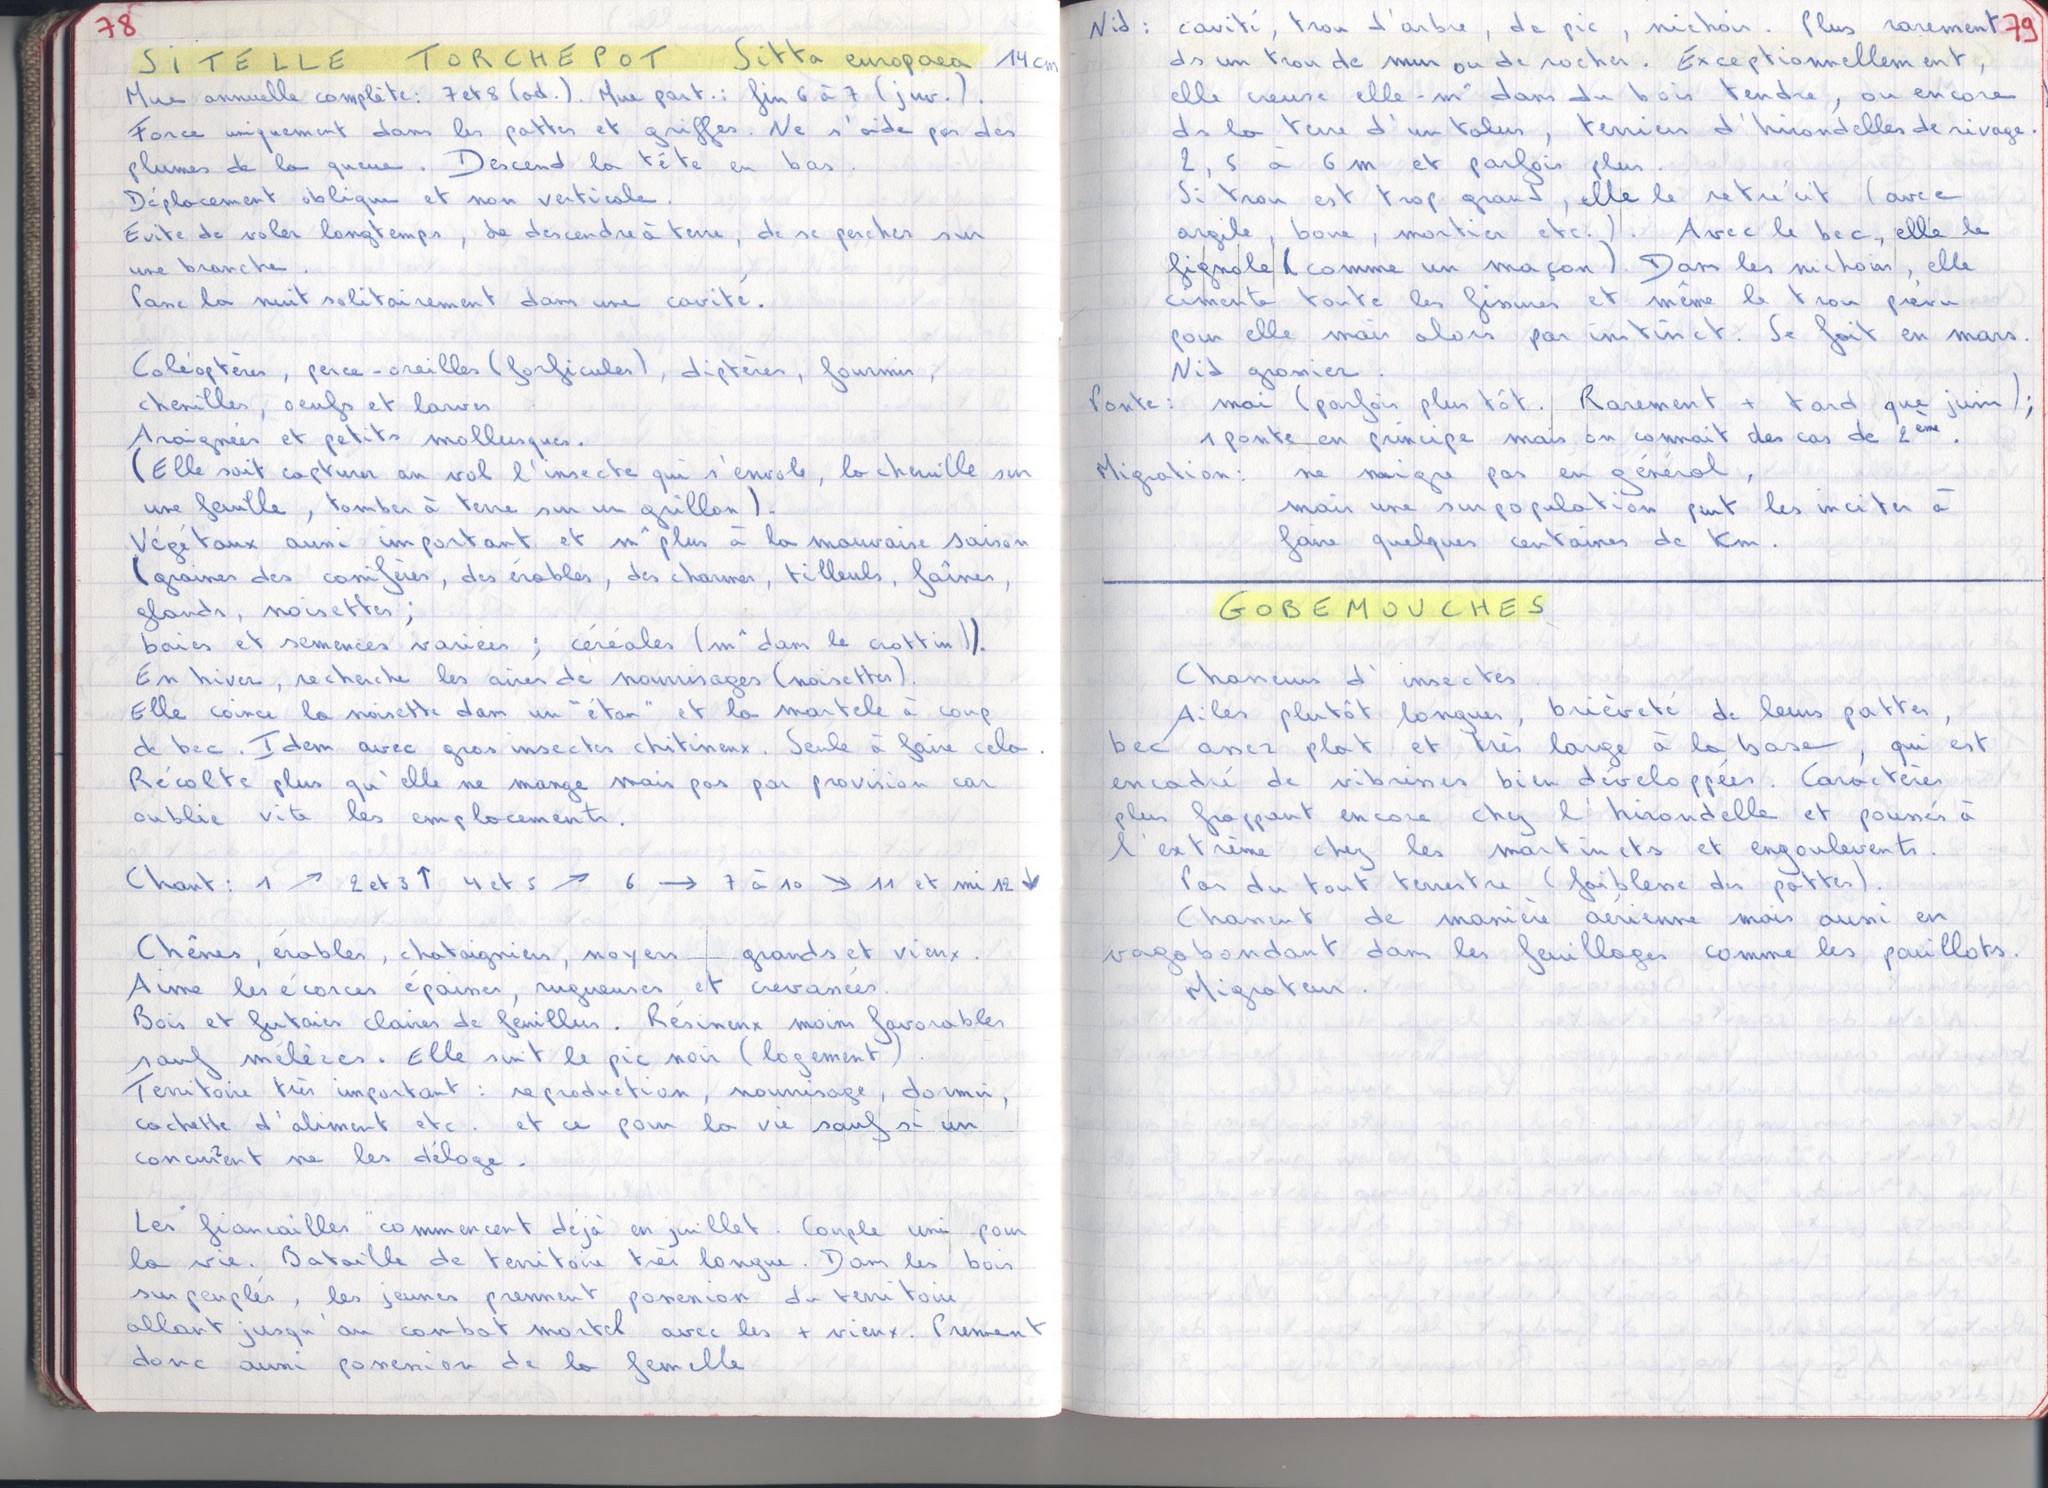 78
SITELLE TORCHEPOT Sitta europaea 14 cm
Mue annuelle complète : 7 et 8 (ad.). Mue part. : fin 6 à 7 (juv.).
Force uniquement dans les pattes et griffes. Ne s'aide pas des
plumes de la queue. Descend la tête en bas.
Déplacement oblique et non verticale.
Evite de voler longtemps, de descendre à terre, de se percher sur
une branche.
Passe la nuit solitairement dans une cavité.
Coléoptères, perce-oreilles (forficules), diptères, fourmis,
chenilles, oeufs et larves
Araignées et petits mollusques.
(Elle sait capturer au vol l'insecte qui s'envole, la chenille sur
une feuille, tomber à terre sur un grillon).
Végétaux aussi important et m^ plus à la mauvaise saison
(graines des conifères, des érables, des charmes, tilleuls, faînes,
glands, noisettes ;
baies et semences variées ; céréales (m^ dans le crottin)).
En hiver, recherche les aires de nourrisages (noisettes).
Elle coince la noisette dans un "étau" et la martèle à coup
de bec. Idem avec gros insectes chitineux. Seule à faire cela.
Récolte plus qu'elle ne mange mais pas par provision car
oublie vite les emplacements.
Chant : 1 ↗ 2 et 3 ↑ 4 et 5 ↗ 6 → 7 à 10 ↘ 11 et mi 12 ↓
Chênes, érables, chataigniers, noyers grands et vieux.
Aime les écorces épaisses, rugueuses et crevassées.
Bois et futaies claires de feuillus. Résineux moins favorables
sauf mélèzes. Elle suit le pic noir (logement).
Territoire très important : reproduction, nourrisage, dormir,
cachette d'aliment etc. et ce pour la vie sauf si un
concurrent ne les déloge.
Les "fiancailles" commencent déjà en juillet. Couple uni pour
la vie. Bataille de territoire très longue. Dans les bois
surpeuplés, les jeunes prennent possession du territoire
allant jusqu'au combat mortel avec les + vieux. Prennent
donc aussi possession de la femelle
79
Nid : cavité, trou d'arbre, de pic, nichoir. Plus rarement
ds un trou de mur ou de rocher. Exceptionnellement,
elle creuse elle-m^ dans du bois tendre, ou encore
ds la terre d'un talus, terriers d'hirondelles de rivage.
2,5 à 6 m et parfois plus.
Si trou est trop grand, elle le retrécit (avec
argile, boue, mortier etc.). Avec le bec, elle le
fignole (comme un maçon). Dans les nichoirs, elle
cimente toute les fissures et même le trou prévu
pour elle mais alors par instinct. Se fait en mars.
Nid grossier.
Ponte : mai (parfois plus tôt. Rarement + tard que juin) ;
1 ponte en principe mais on connait des cas de 2ème.
Migration : ne migre pas en général,
mais une surpopulation peut les inciter à
faire quelques centaines de Km.
GOBEMOUCHES
Chasseurs d'insectes
Ailes plutôt longues, brièveté de leurs pattes,
bec assez plat et très large à la base, qui est
encadré de vibrisses bien développées. Caractères
plus frappant encore chez l'hirondelle et poussés à
l'extrême chez les martinets et engoulevents.
Pas du tout terrestre (faiblesse des pattes).
Chassent de manière aérienne mais aussi en
vagabondant dans les feuillages comme les pouillots.
Migrateur.